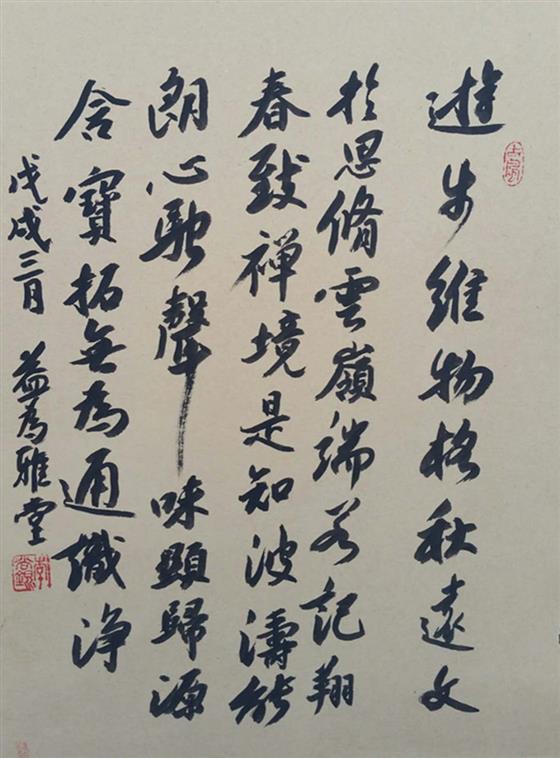 遊步維物格秋遠文
於思脩雲嶺端若記翔
春致禪境是知波濤能
朗心馳聲味顯歸源
含寶拓無為通淨
戊戌三月 益為雅堂